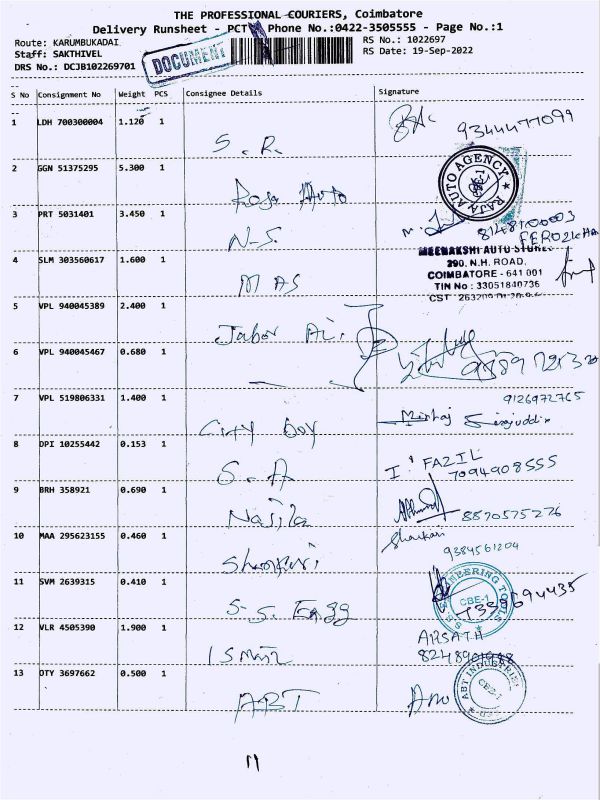 THE PROFESSIONAL COURIERS, Coimbatore
Delivery Runsheet - PCT Phone No.:0422-3505555 - Page No.:1
Route: KARUMBUKADAI
RS No.: 1022697
Staff: SAKTHIVEL
RS Date: 19-Sep-2022
DRS No.: DCJB102269701
DOCUMENT
S No Consignment No Weight PCS Consignee Details Signature
1 LDH 700300004 1.120 1 S. R. 9344477099
2 GGN 51375295 5.300 1 Raja Auto
RAJA AUTO AGENCY
CBE-1
3 PRT 5031401 3.450 1 N-S.
4 SLM 303560617 1.600 1 M AS
MEENAKSHI AUTO STORES
290, N.H. ROAD,
COIMBATORE - 641 001
TIN No : 33051840736
5 VPL 940045389 2.400 1 Jabor Ali.
6 VPL 940045467 0.680 1
7 VPL 519806331 1.400 1 City Boy
9126972765
Sirajuddin
8 DPI 10255442 0.153 1 S. A
I. FAZIL
7094908555
9 BRH 358921 0.690 1 Nasila
8870575276
10 MAA 295623155 0.460 1
9384561204
11 SVM 2639315 0.410 1 S-S. Engg
ENGINEERING TOOLS
CBE-1
12 VLR 4505390 1.900 1 ISmail
ARSATH
13 OTY 3697662 0.500 1 ABT
ABT INDUSTRIES
CBE-1
11